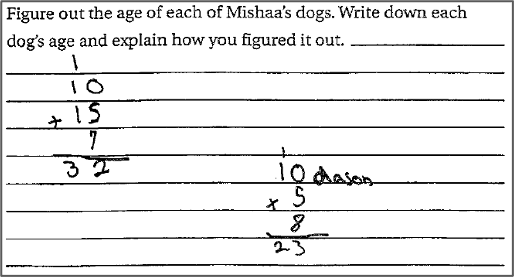 Figure out the age of each of Mishaa's dogs. Write down each
dog's age and explain how you figured it out.
1
10
+ 15
7
32
1
10
x 5
8
23